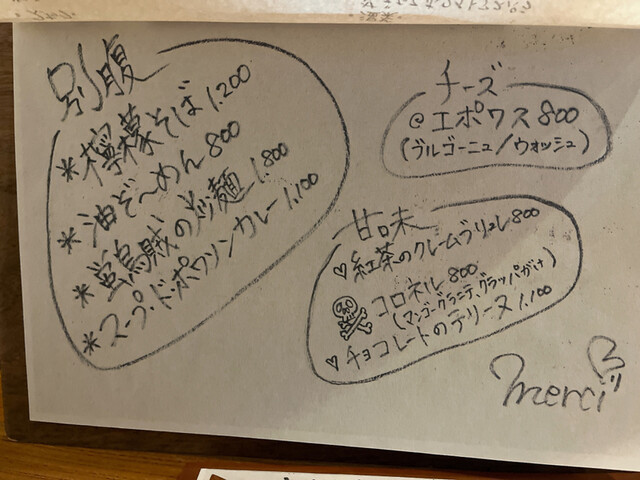 別腹
*檸檬そば 1.200
*油そ〜めん 800
*蛍烏賊の冷麺 1.800
*スープ・ド・ポワソンカレー 1.100
チーズ
@エポワス 800
(ブルゴーニュ/ウォッシュ)
甘味
♡紅茶のクレームブリュレ 800
コロネル 800
(マンゴーグラニテ、グラッパがけ)
♡チョコレートのテリーヌ 1.100
merci